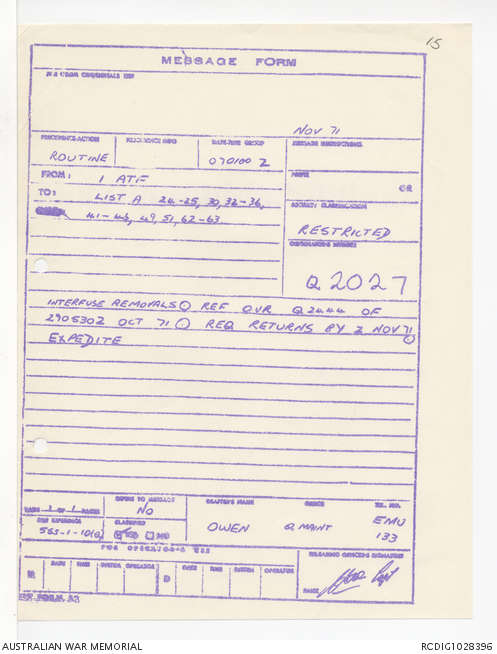 15
MESSAGE FORM
NOV 71
PRECEDENCE-ACTION
DATE-TIME GROUP
MESSAGE INSTRUCTIONS
ROUTINE
070100 Z
FROM: 1 ATF
PREFIX
GR
TO: LIST A 24-25, 30, 32-36,
41-46, 49, 51, 62-63
SECURITY CLASSIFICATION
RESTRICTED
ORIGINATOR'S NUMBER
Q2027
INTERFUSE REMOVALS. REF OUR Q2444 OF
290530Z OCT 71. REQ RETURNS BY 2 NOV 71.
EXPEDITE
PAGE 1 OF 1 PAGES
REFERS TO MESSAGE
NO
DRAFTER'S NAME
OFFICE
TEL. NO.
FILE REFERENCE
CLASSIFIED
YES NO
OWEN
Q MAINT
EMU
133
FOR OPERATOR'S USE
RELEASING OFFICER'S SIGNATURE
R
DATE
TIME
SYSTEM
OPERATOR
D
DATE
TIME
SYSTEM
OPERATOR
RANK
Capt
AUSTRALIAN WAR MEMORIAL
RCDIG1028396